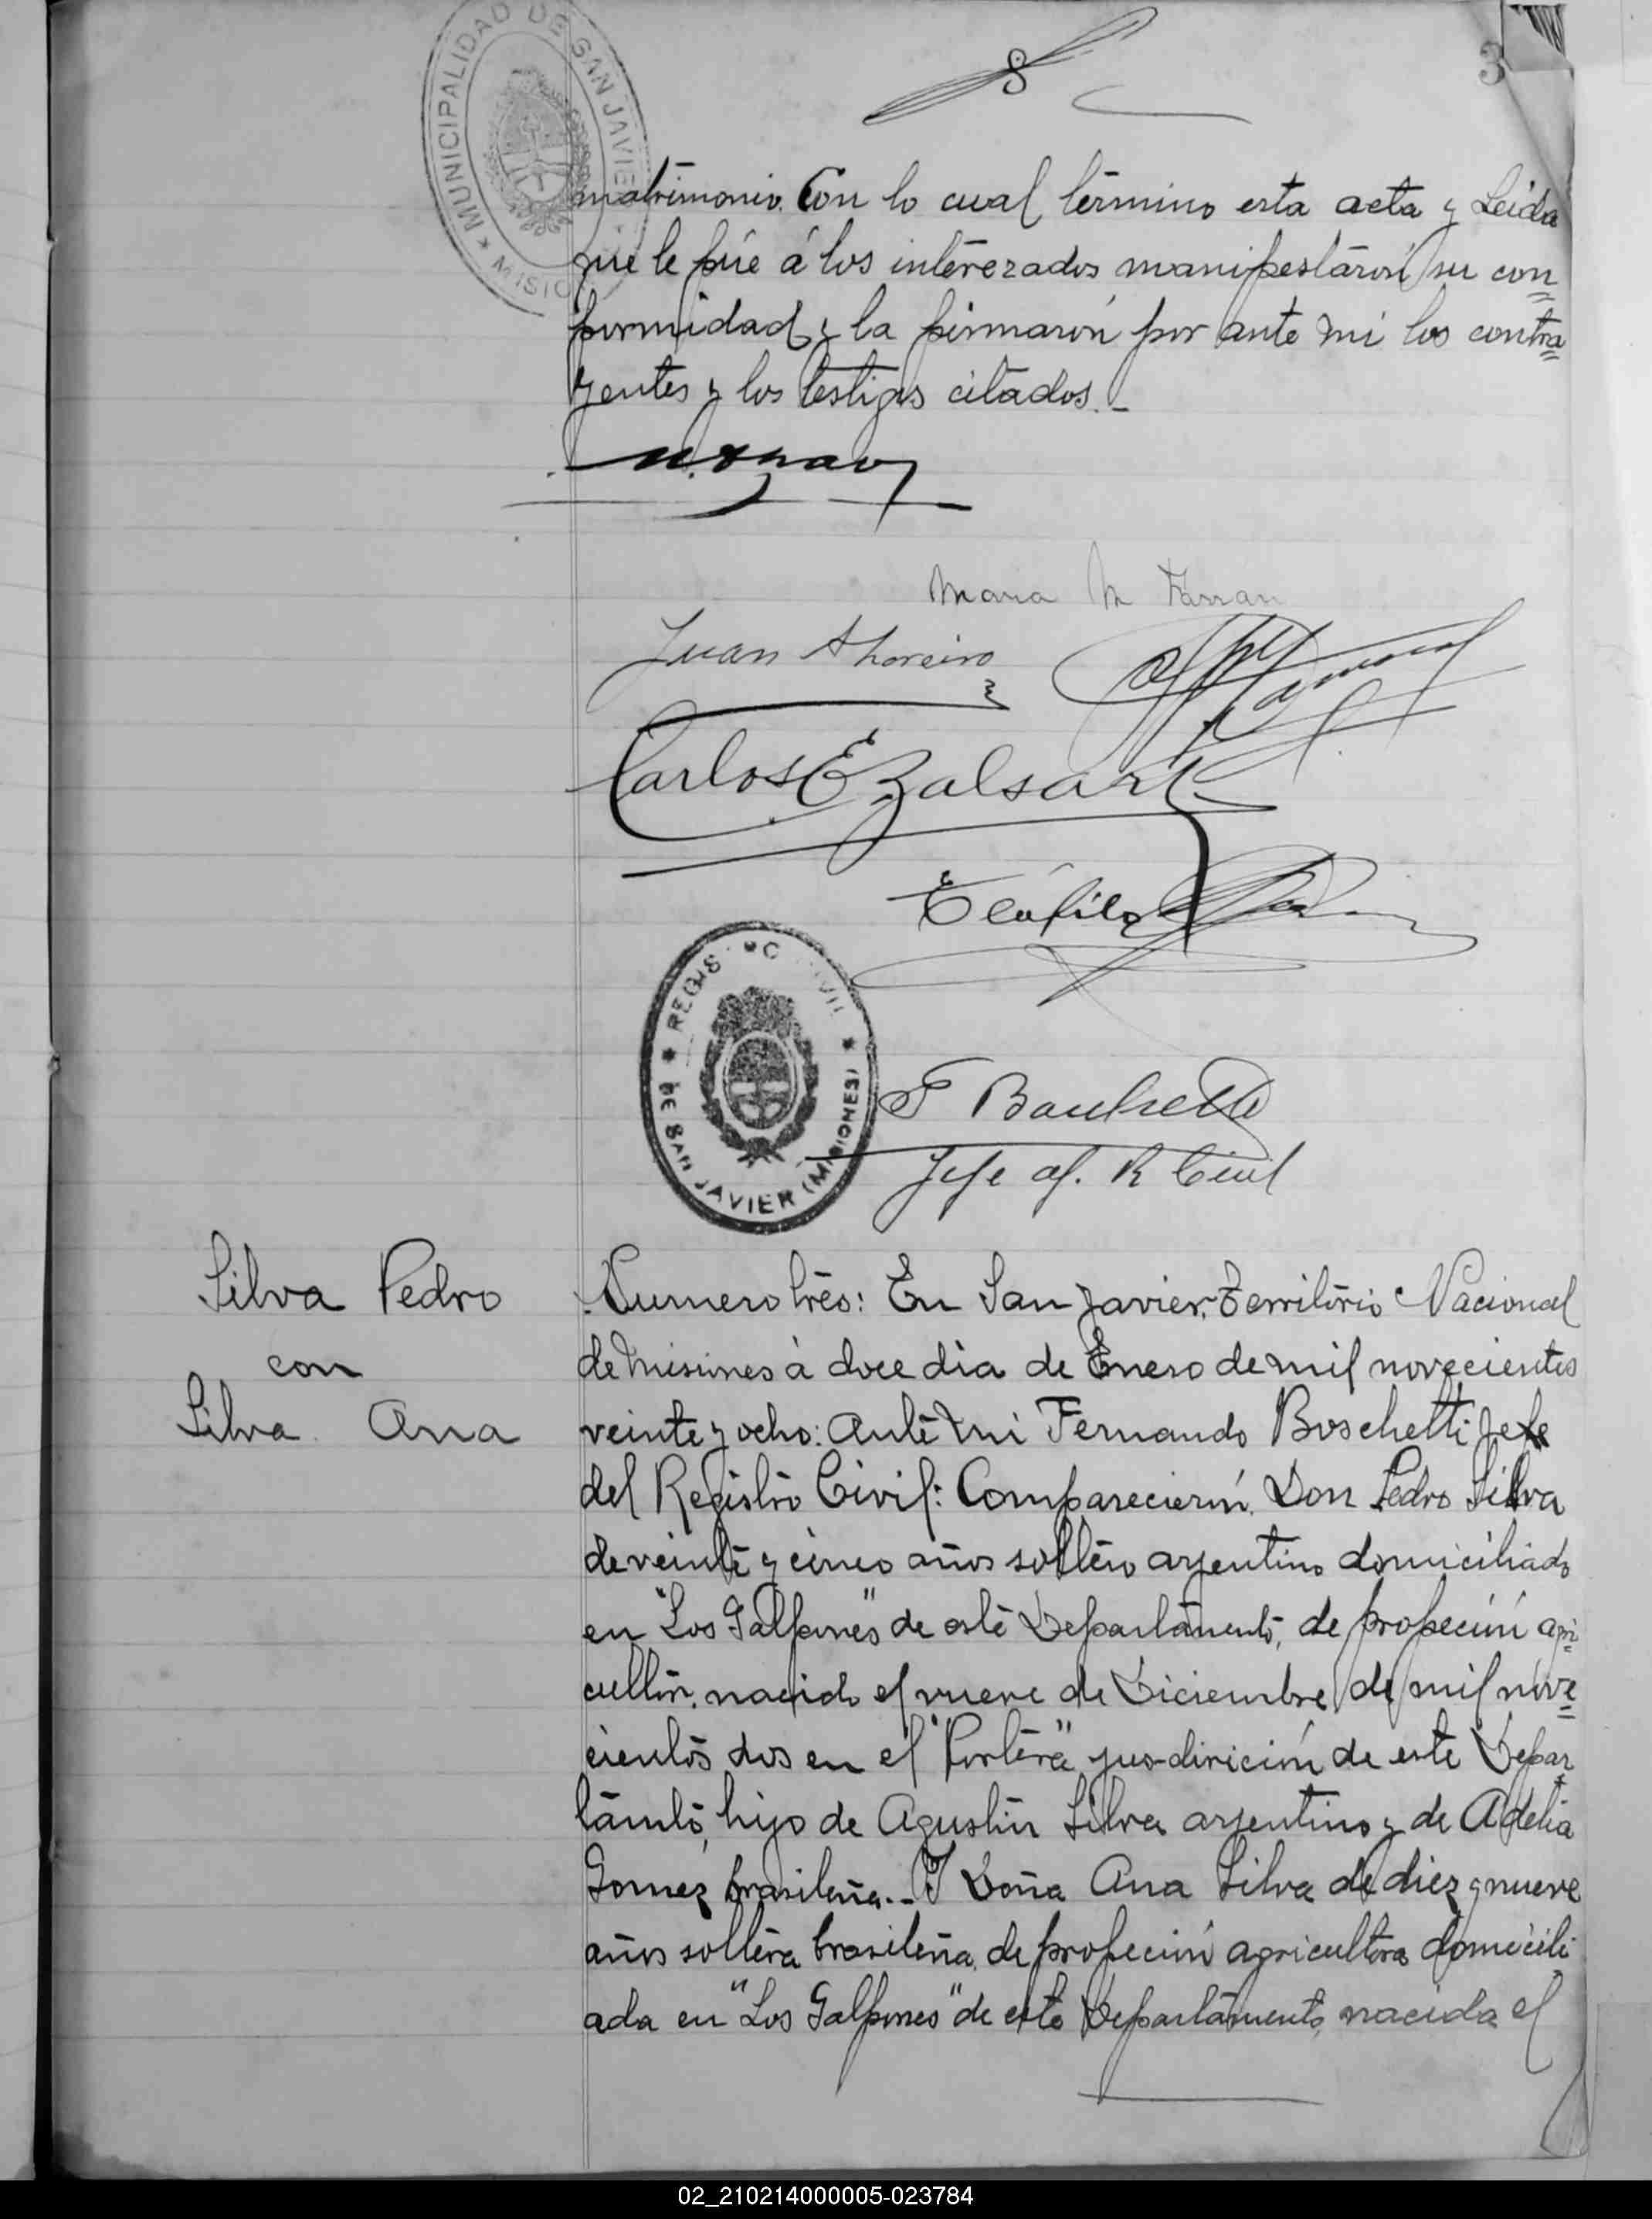 MUNICIPALIDAD DE SAN JAVIER * MISIO
8
3
matrimonio. Con lo cual término esta acta y Leida
que le fúe á los interezados manifestarón su con=
formidad y la firmarón por ante mi los contra=
yentes y los testigos citados. _
Maria M Farran
Juan A
Carlos E
Teófilo
* REGIS CIVIL * DE SAN JAVIER (MISIONES)
F Bochetti
Jefe of. R Civil
Silva Pedro
con
Silva Ana
Numero trés: En San Javier, Território Nacional
de Misiones á doce dia de Enero de mil novecientos
veinte y ocho: Ante mi Fernando Boschetti Jefe
del Registro Civil: Comparecierón Don Pedro Silva
de veinte y cinco años soltero arjentino domiciliado
en "Los Galpones" de este Departamento, de profeción agri=
cultor, nacido el nueve de Diciembre de mil nove=
cientos dos en el "Portéra" jus-dirición de este Depar
támto, hijo de Agustin Silva arjentino y de Adelia
Gomez brasileña.- I Doña Ana Silva de diez y nueve
años soltera brasileña, de profeción agricultora domicili
ada en "Los Galpones" de este Departamento, nacida el
02_210214000005-023784